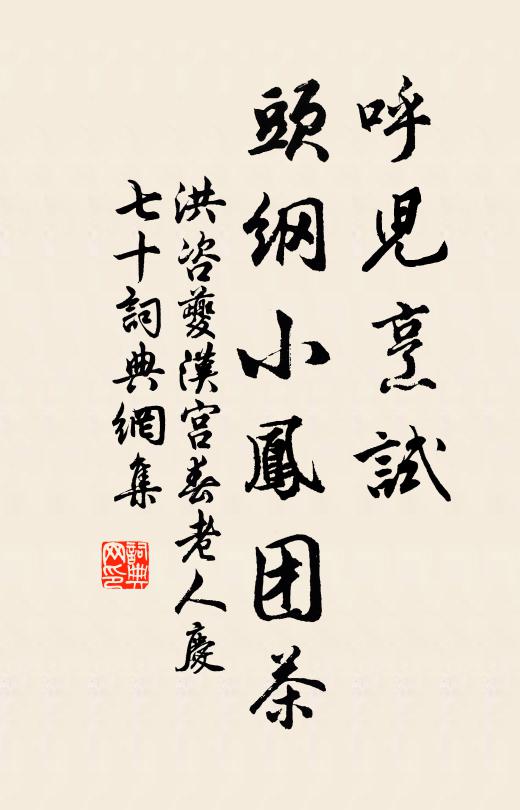 呼児烹試
頭綱小鳳团茶
洪咨夔漢宮春老人慶
七十詞典網集
詞典网印